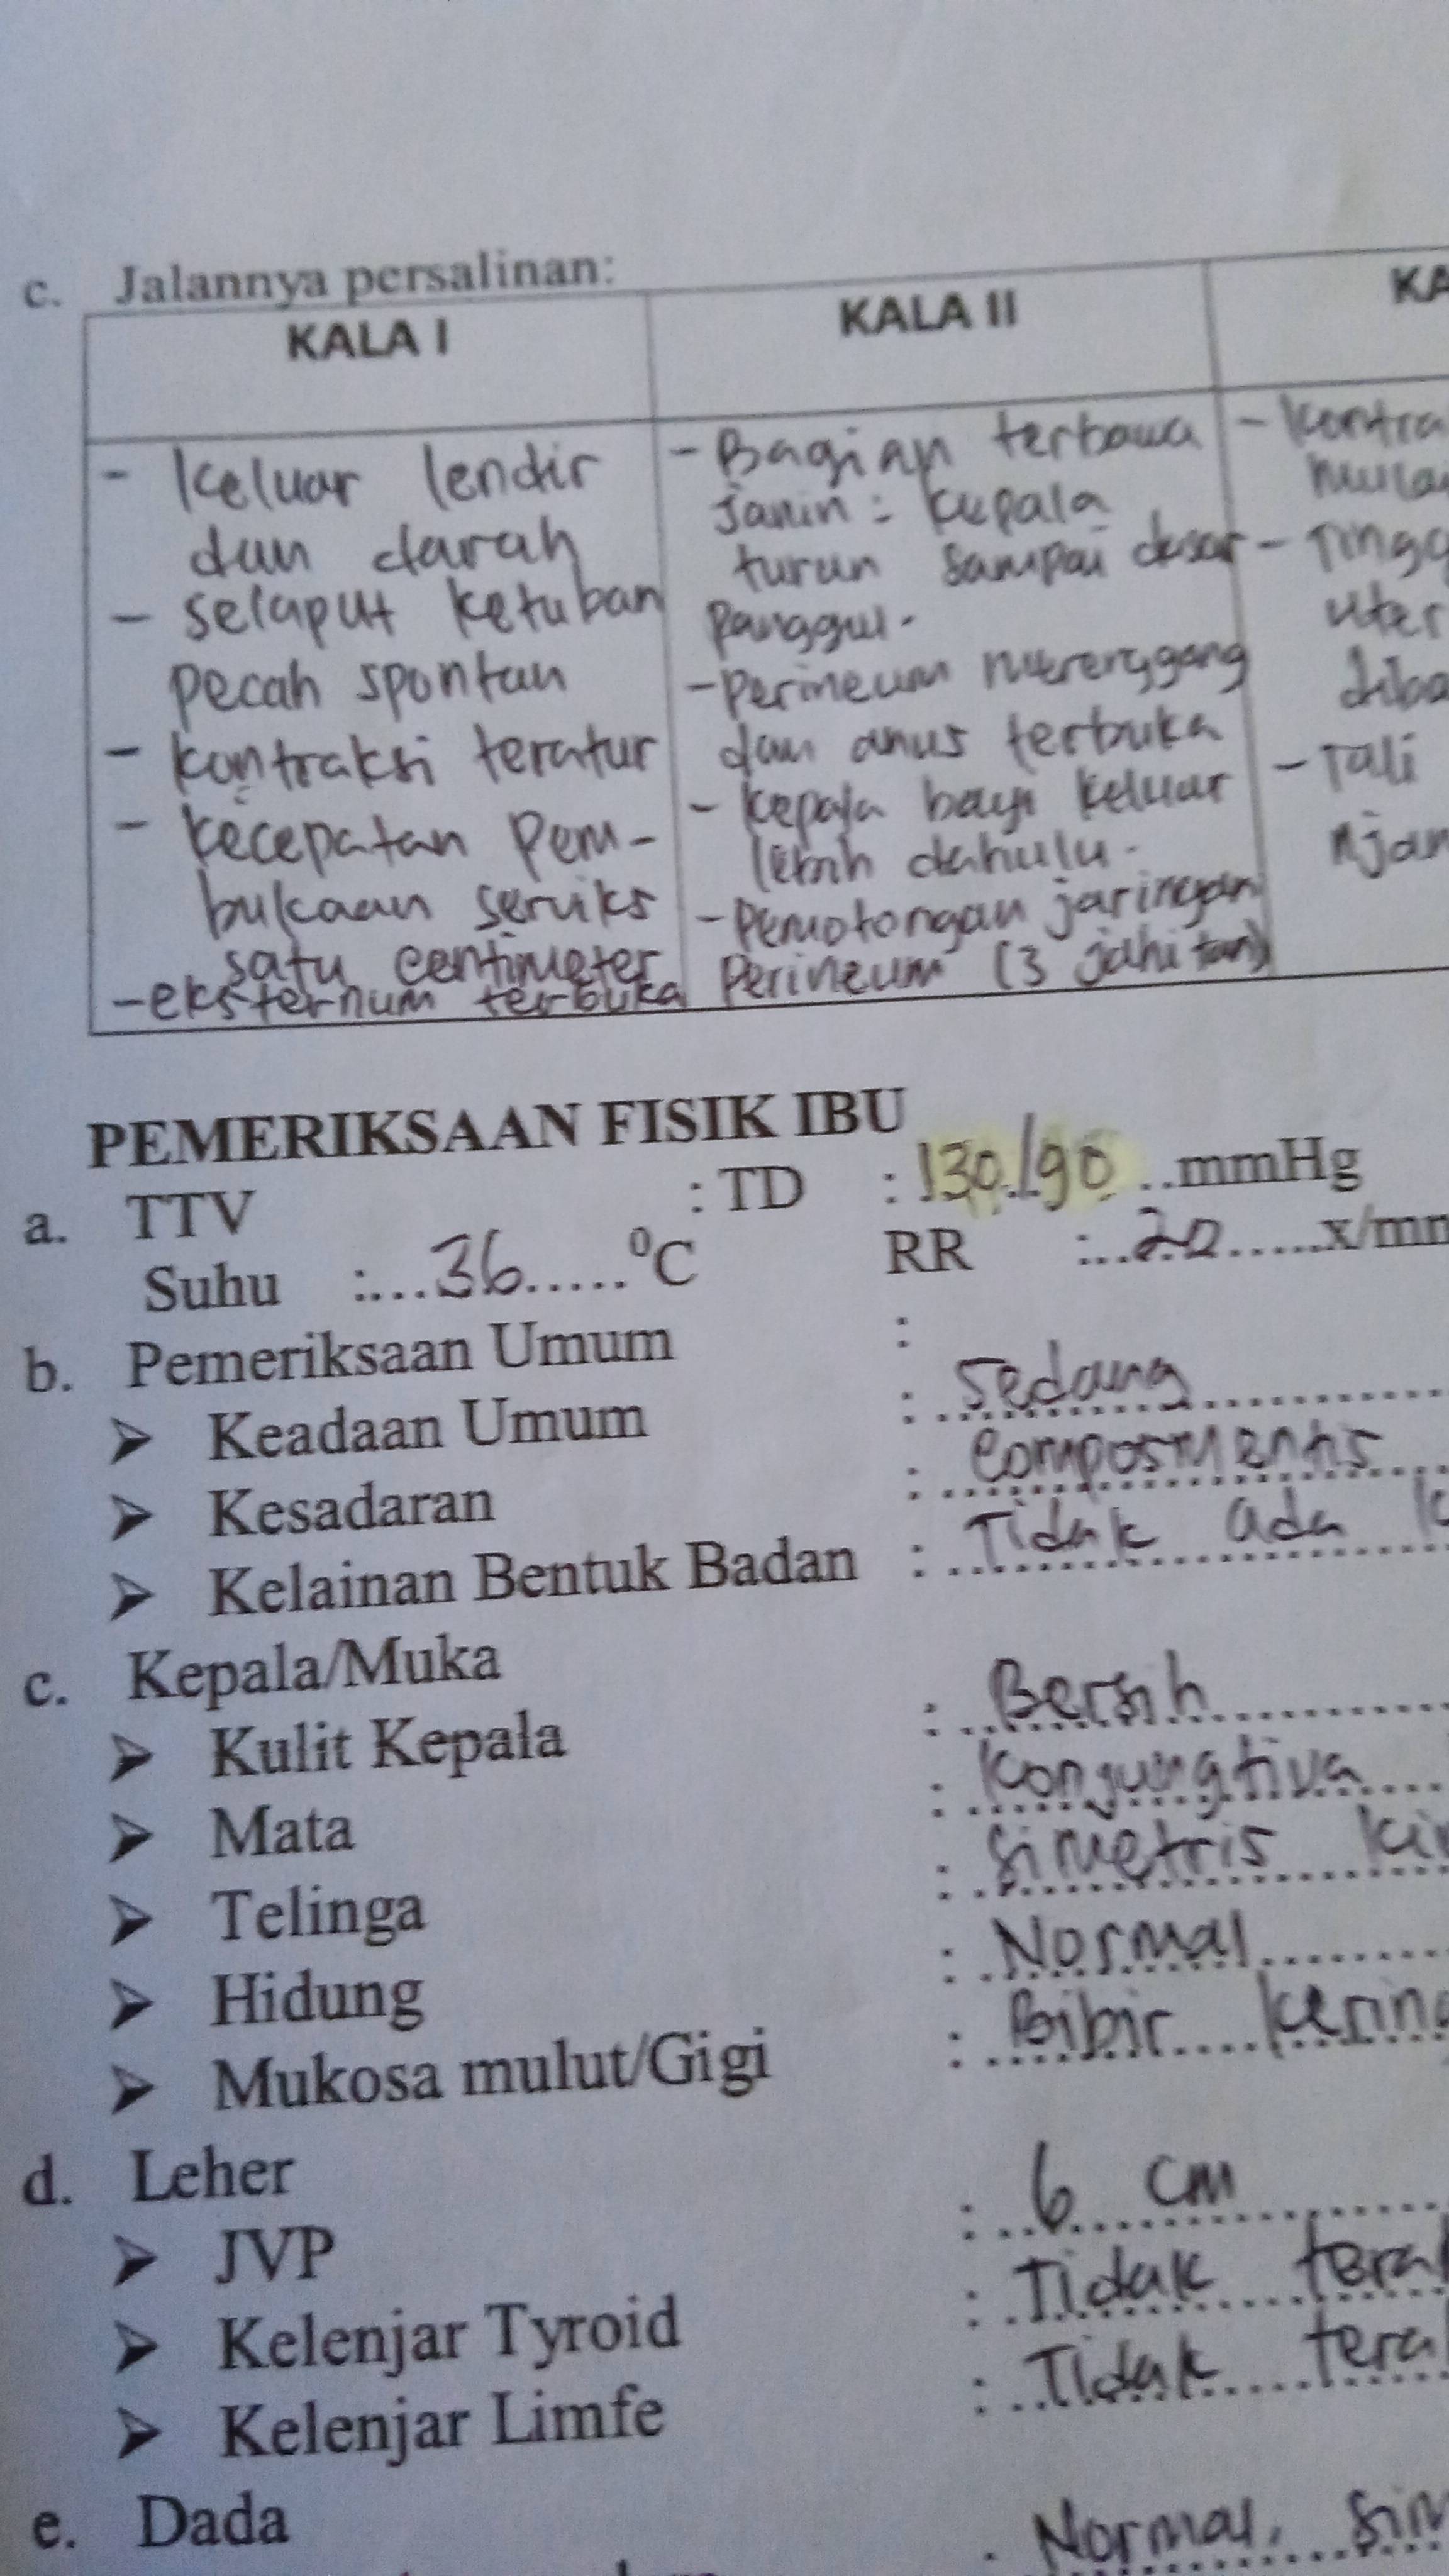 c. Jalannya persalinan:
KALA I
KALA II
KA
- keluar lendir
dan darah
- selaput ketuban
pecah spontan
- kontraksi teratur
- kecepatan Pem-
bukaan serviks
satu centimeter
- eksternum terbuka
- Bagian terbawa
Janin : kepala
turun sampai dasar
Panggul.
- Perineum merenggang
dan anus terbuka
- kepala bayi keluar
lebih dahulu.
- Pemotongan jaringan
Perineum (3 jahitan)
- kontra
mula
- Tingg
uter
diba
- Tali
njan
PEMERIKSAAN FISIK IBU
a. TTV : TD : 130/90 mmHg
Suhu : 36 ⁰C RR : 20 x/mn
b. Pemeriksaan Umum :
➢ Keadaan Umum : Sedang
➢ Kesadaran : Composmentis
➢ Kelainan Bentuk Badan : Tidak ada k
c. Kepala/Muka
➢ Kulit Kepala : Bersih
➢ Mata : Konjungtiva
➢ Telinga : Simetris ki
➢ Hidung : Normal
➢ Mukosa mulut/Gigi : Bibir kering
d. Leher
➢ JVP : 6 cm
➢ Kelenjar Tyroid : Tidak tera
➢ Kelenjar Limfe : Tidak tera
e. Dada
: Normal, Sim